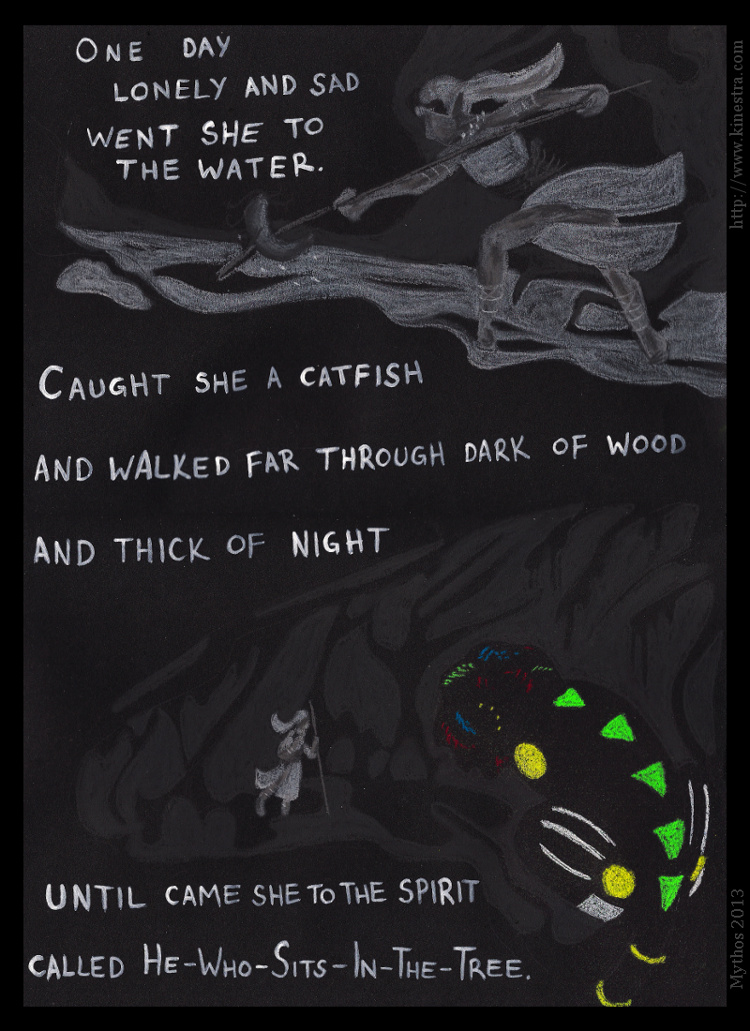 ONE DAY
LONELY AND SAD
WENT SHE TO
THE WATER.
CAUGHT SHE A CATFISH
AND WALKED FAR THROUGH DARK OF WOOD
AND THICK OF NIGHT
UNTIL CAME SHE TO THE SPIRIT
CALLED HE-WHO-SITS-IN-THE-TREE.
http://www.kinestra.com
Mythos 2013